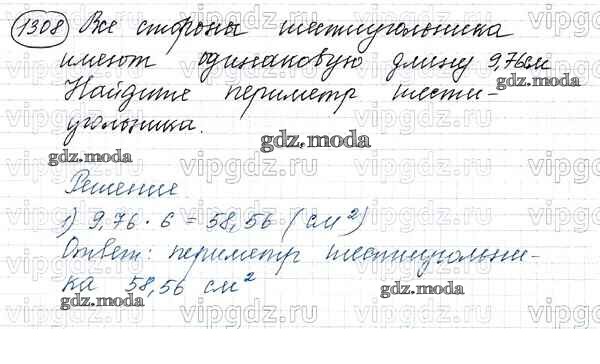 1308 Все стороны шестиугольника
имеют одинаковую длину 9,76см
gdz.moda
Найдите периметр шести-
угольника.
gdz.moda
gdz.moda
Решение
1) 9,76 · 6 = 58,56 (см²)
Ответ: периметр шестиугольни-
ка 58,56 см²
gdz.moda
gdz.moda
vipgdz.ru